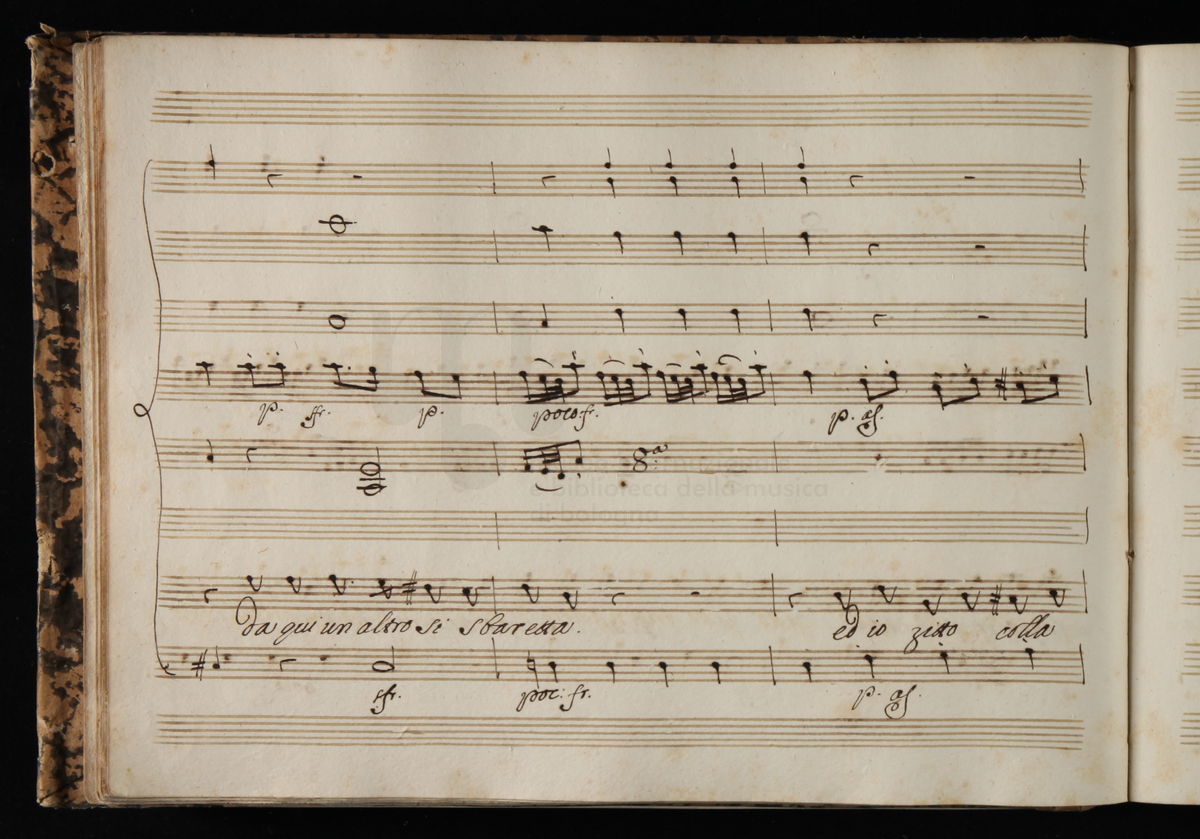 p. sfr. p. poco: fr. p. as.
8:a
e biblioteca della musica
di bologna
da qui un altro si sbaretta. ed io zitto colla
sfr. poc: fr. p. as.